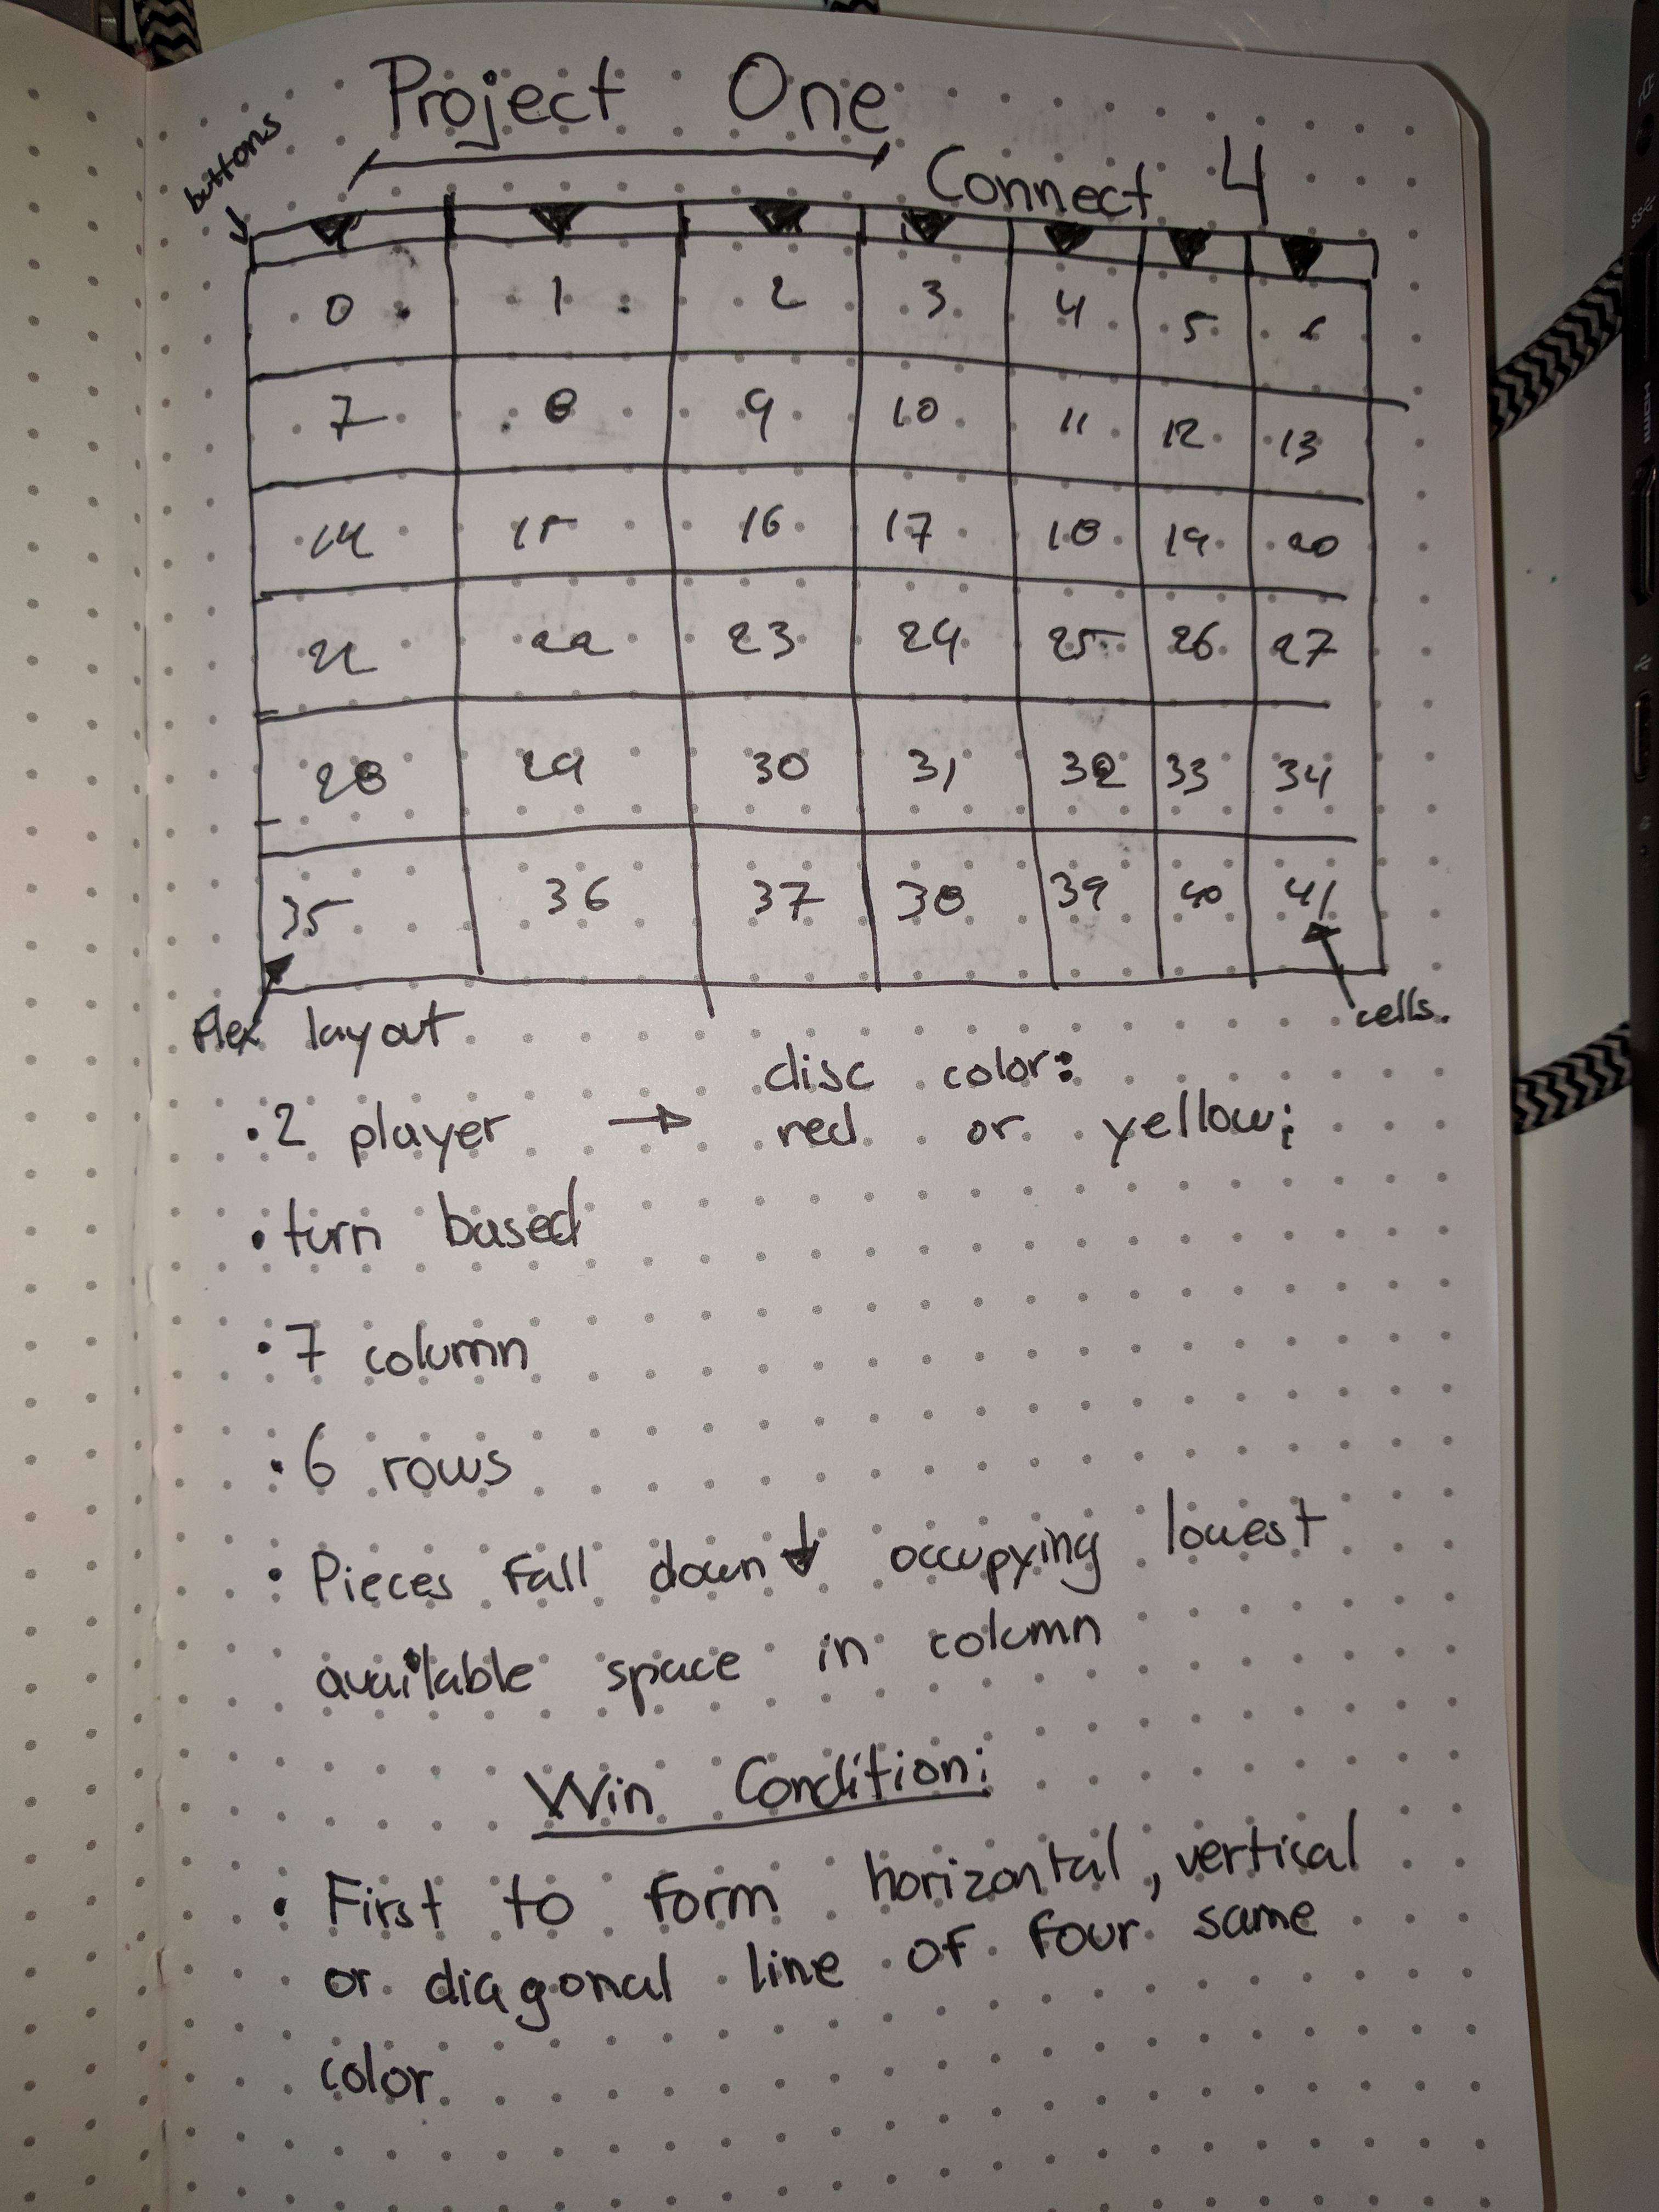 Project One
buttons
Connect 4
0 1 2 3 4 5 6
7 8 9 10 11 12 13
14 15 16 17 18 19 20
21 22 23 24 25 26 27
28 29 30 31 32 33 34
35 36 37 38 39 40 41
Flex layout
cells.
disc color:
• 2 player → red or yellow;
• turn based
• 7 column
• 6 rows
• Pieces fall down ↓ occupying lowest
available space in column
Win Condition:
• First to form horizontal, vertical
or diagonal line of four same
color